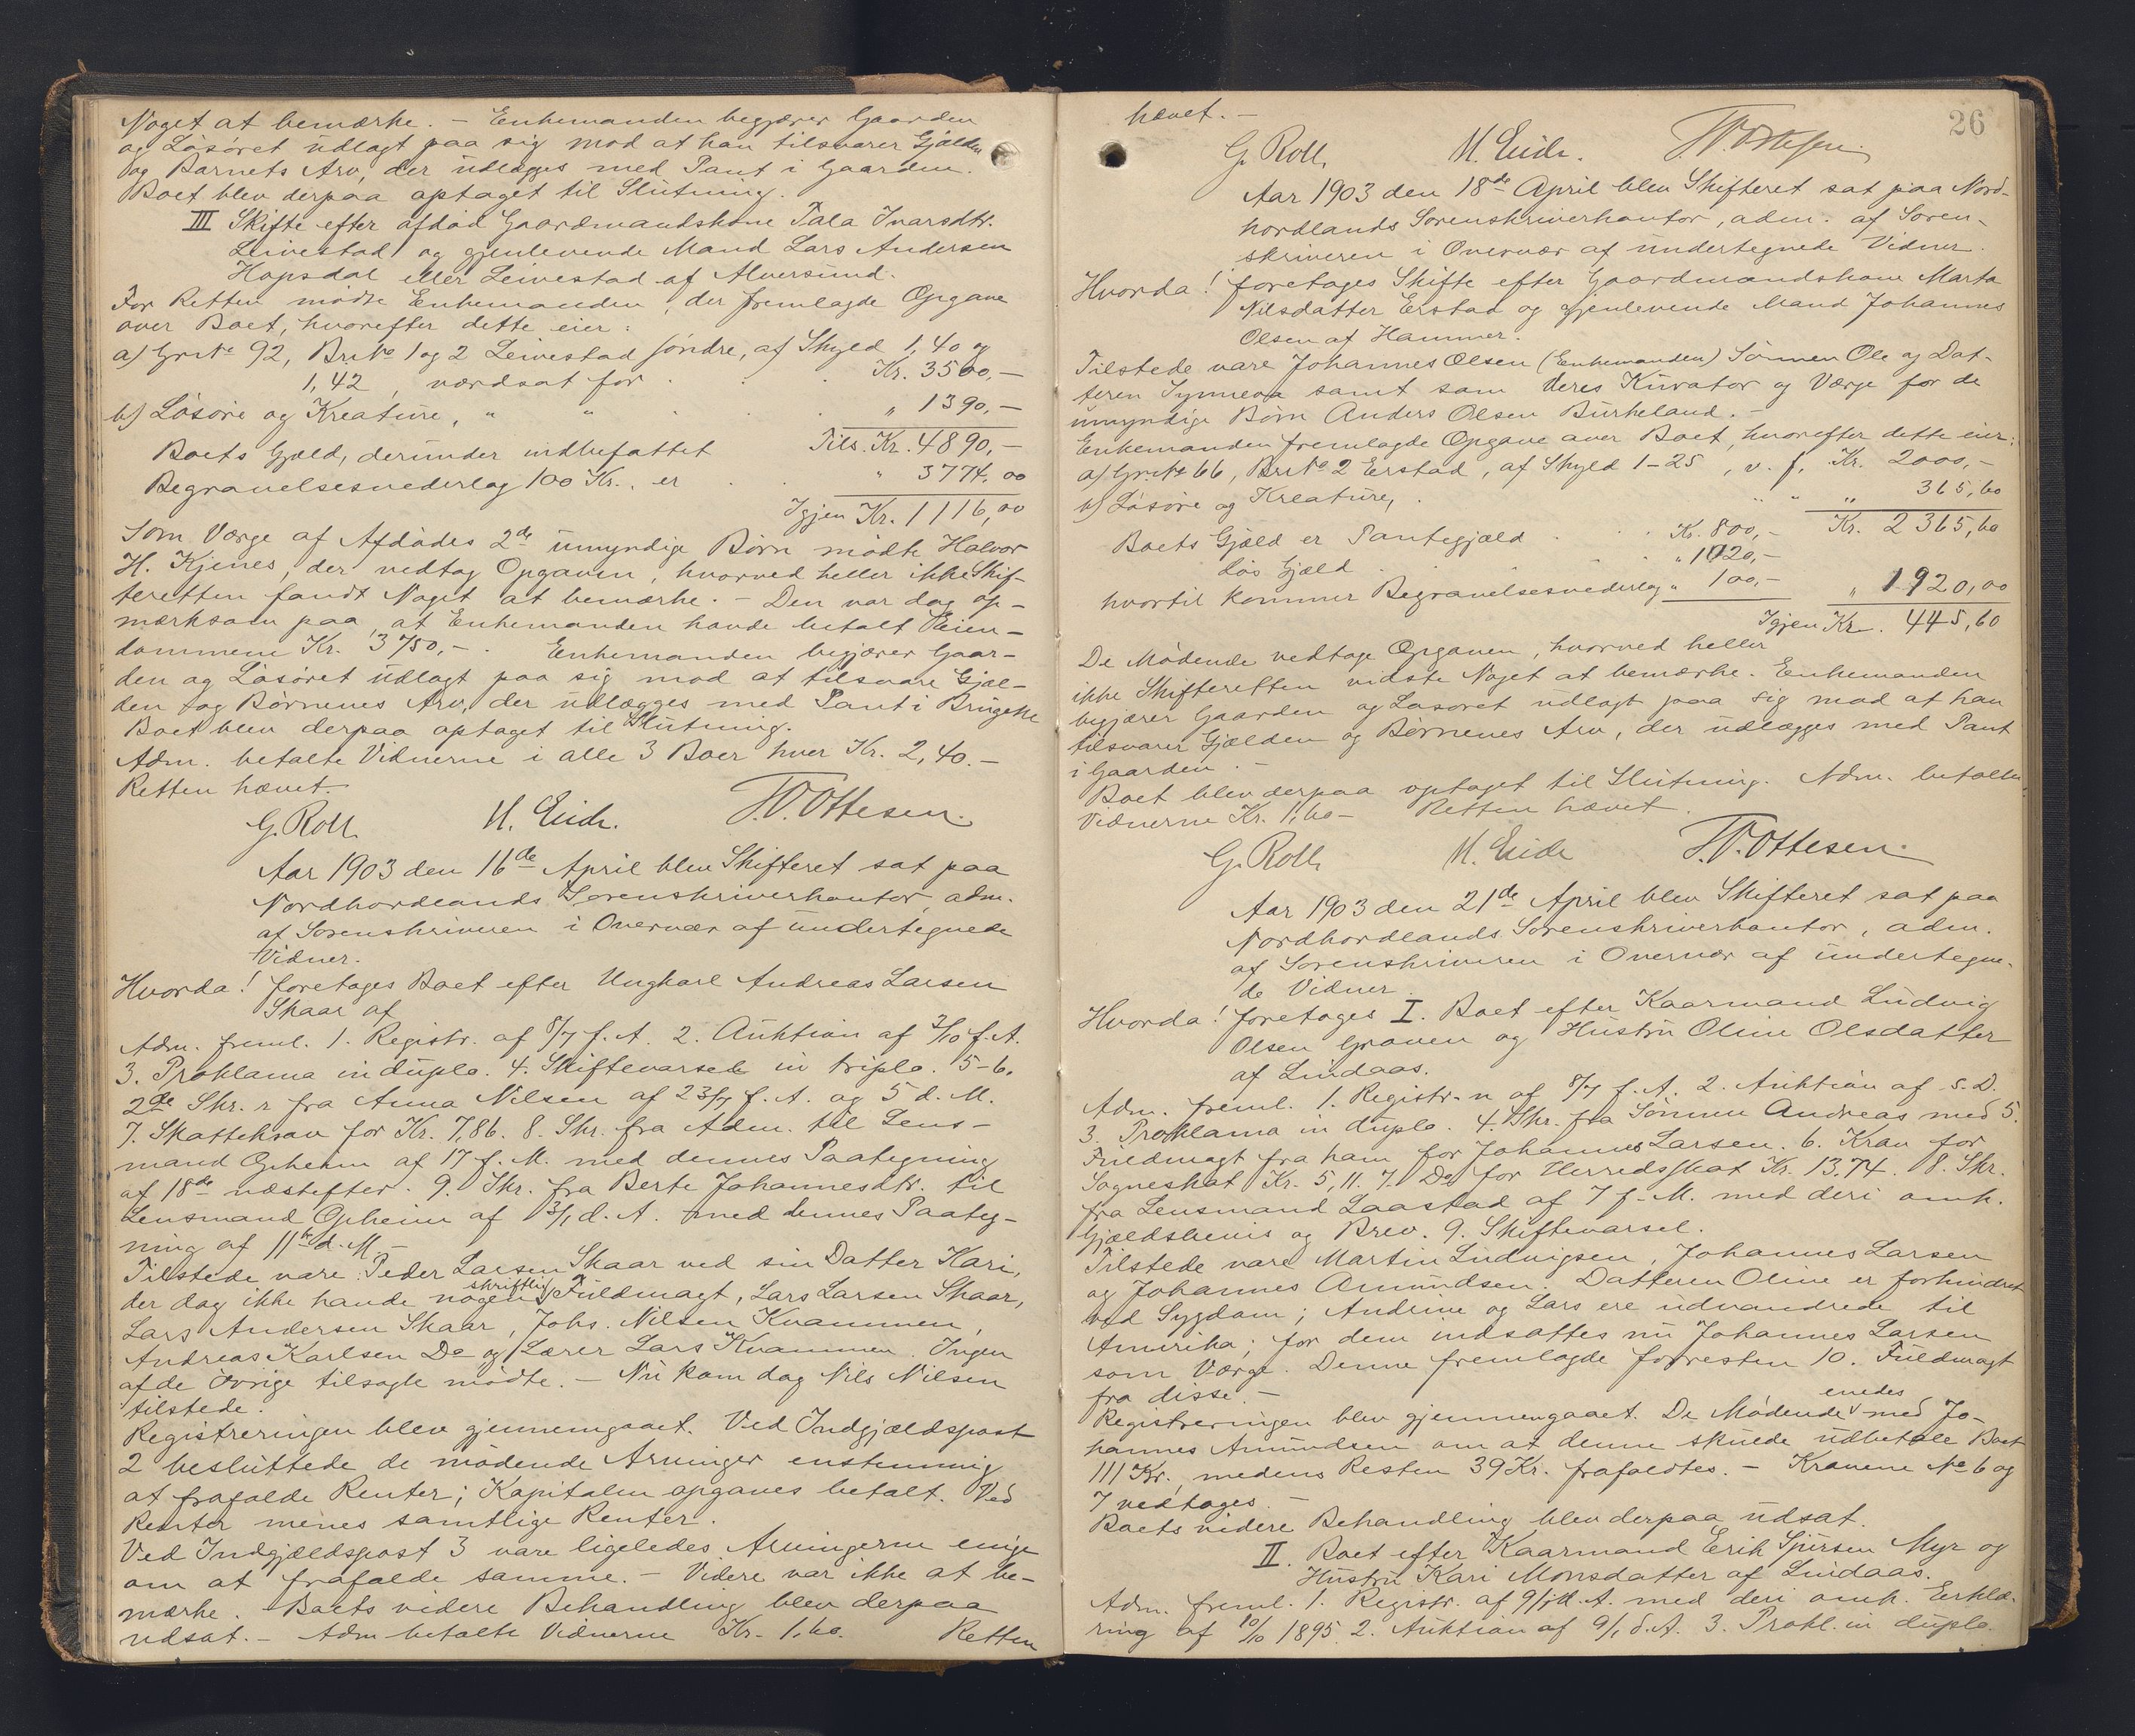 Noget at bemærke. – Enkemanden begjærer Gaarden
og Løsøret udlagt paa sig mod at han tilsvarer Gjælden
og Barnets Arv, der udlægges med Pant i Gaarden.
Boet blev derpaa optaget til Slutning.
III Skifte efter afdød Gaardmandskone Tala Ivarsdtr.
Leivestad og gjenlevende Mand Lars Andersen
Hopsdal eller Leivestad af Alversund.
For Retten mødte Enkemanden, der fremlagde Opgave
over Boet, hvorefter dette eier:
a) Gr.No 92, Br.No 1 og 2 Leivestad søndre, af Skyld 1,40 og
1,42, værdsat for . . . Kr. 3500,–
b) Løsøre og Kreature, " " . . . " 1390,–
Tils. Kr. 4890,–
Boets Gjæld, derunder indbefattet
Begravelsesvederlag 100 Kr., er . . " 3774,00
Igjen Kr. 1116,00
Som Værge af Afdødes 2de umyndige Børn mødte Halvor
H. Kjenes, der vedtog Opgaven, hvorved heller ikke Skif-
teretten fandt Noget at bemærke. – Den var dog op-
mærksom paa, at Enkemanden havde betalt Eien-
dommene Kr. 3750,–. Enkemanden begjærer Gaar-
den og Løsøret udlagt paa sig mod at tilsvare Gjæl-
den og Børnenes Arv, der udlægges med Pant i Brugene
Boet blev derpaa optaget til Slutning.
Adm. betalte Vidnerne i alle 3 Boer hver Kr. 2,40.–
Retten hævet.
G. Roll. M. Eide. T.V. Ottesen.
Aar 1903 den 16de April blev Skifteret sat paa
Nordhordlands Sorenskriverkontor, adm.
af Sorenskriveren i Overvær af undertegnede
Vidner.
Hvorda! foretages Boet efter Ungkarl Andreas Larsen
Skaar af
Adm. freml. 1. Registr. af 8/7 f.A. 2. Auktion af 3/10 f.A.
3. Proklama in duplo. 4. Skiftevarsel in triplo. 5-6.
2de Skr. r fra Anna Nilsen af 23/7 f.A. og 5 d.M.
7. Skattekrav for Kr. 7,86. 8. Skr. fra Adm. til Lens-
mand Opheim af 17 f.M. med dennes Paategning
af 18de næstefter. 9. Skr. fra Berte Johannesdtr. til
Lensmand Opheim af 3/1 d.A. med dennes Paateg-
ning af 11te d.M.–
Tilstede vare: Peder Larsen Skaar ved sin Datter Kari,
der dog ikke havde nogen skriftlig Fuldmagt, Lars Larsen Skaar,
Lars Andersen Skaar, Johs. Nilsen Kvammen,
Andreas Karlsen Do og Lærer Lars Kvammen. Ingen
af de øvrige tilsagte mødte. – Nu kom dog Nils Nilsen
tilstede.
Registreringen blev gjennemgaaet. Ved Indgjældspost
2 besluttede de mødende Arvinger enstemmig
at frafalde Renter; Kapitalen opgaves betalt. Ved
Renter menes samtlige Renter.
Ved Indgjældspost 3 vare ligeledes Arvingerne enige
om at frafalde samme. – Videre var ikke at be-
mærke. Boets videre Behandling blev derpaa
udsat. – Adm betalte Vidnerne Kr. 1,60. Retten
26
hævet. –
G. Roll. M. Eide. T.V. Ottesen.
Aar 1903 den 18de April blev Skifteret sat paa Nord-
hordlands Sorenskriverkontor, adm. af Soren-
skriveren i Overvær af undertegnede Vidner.
Hvorda! foretages Skifte efter Gaardmandskone Marta
Nilsdatter Erstad og gjenlevende Mand Johannes
Olsen af Hammer.
Tilstede vare Johannes Olsen (Enkemanden) Sønnen Ole og Dat-
teren Synneva samt som deres Kurator og Værge for de
umyndige Børn Anders Olsen Birkeland. –
Enkemanden fremlagde Opgave over Boet, hvorefter dette eier:
a) Gr.No 66, Br.No 2 Erstad, af Skyld 1-25, v. f. Kr. 2000,–
b) Løsøre og Kreature, . " " " 365,60
Kr. 2365,60
Boets Gjæld er Pantegjæld . . Kr. 800,–
Løs Gjæld . . . " 1020,–
hvortil kommer Begravelsesvederlag " 100,– " 1920,00
Igjen Kr. 445,60
De Mødende vedtoge Opgaven, hvorved heller
ikke Skifteretten vidste Noget at bemærke. Enkemanden
begjærer Gaarden og Løsøret udlagt paa sig mod at han
tilsvarer Gjælden og Børnenes Arv, der udlægges med Pant
i Gaarden. –
Boet blev derpaa optaget til Slutning. Adm. betalte
Vidnerne Kr. 1,60– Retten hævet.
G. Roll. M. Eide T.V. Ottesen.
Aar 1903 den 21de April blev Skifteret sat paa
Nordhordlands Sorenskriverkontor, adm.
af Sorenskriveren i Overvær af undertegne-
de Vidner.
Hvorda! foretages I. Boet efter Kaarmand Ludvig
Olsen Graven og Hustru Oline Olsdatter
af Lindaas.
Adm. freml. 1. Registr.n af 8/7 f.A. 2. Auktion af s.D.
3. Proklama in duplo. 4. Skr. fra Sønnen Andreas med 5.
Fuldmagt fra ham for Johannes Larsen. 6. Krav for
Sogneskat Kr. 5,11. 7. Do for Herredsskat Kr. 13,74. 8. Skr.
fra Lensmand Laastad af 7 f.M. med deri omh.
Gjældsbevis og Brev. 9. Skiftevarsel.
Tilstede vare Martin Ludvigsen, Johannes Larsen
og Johannes Amundsen. Datteren Oline er forhindret
ved Sygdom; Andrine og Lars ere udvandrede til
Amerika; for dem indsattes nu Johannes Larsen
som Værge. Denne fremlagde forresten 10. Fuldmagt
fra disse. –
Registreringen blev gjennemgaaet. De Mødende enedes med Jo-
hannes Amundsen om at denne skulde udbetale Boet
111 Kr., medens Resten 39 Kr. frafaldtes. – Kravene No 6 og
7 vedtoges. –
Boets videre Behandling blev derpaa udsat.
II. Boet efter Kaarmand Erik Sjursen Myr og
Hustru Kari Monsdatter af Lindaas.
Adm. freml. 1. Registr. af 9/1 d.A. med deri omh. Erklæ-
ring af 10/10 1895. 2. Auktion af 9/1 d.A. 3. Prokl. in duplo.